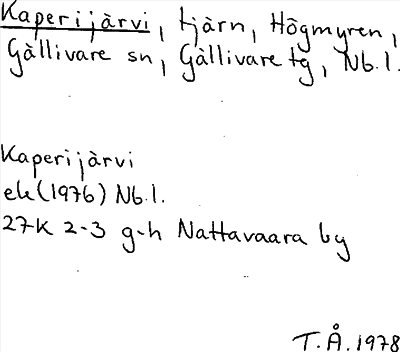 Kaperijärvi, tjärn, Högmyren,
Gällivare sn, Gällivare tg, Nb.l.
Kaperijärvi
ek(1976) Nb.l.
27K 2-3 g-h Nattavaara by
T.Å.1978